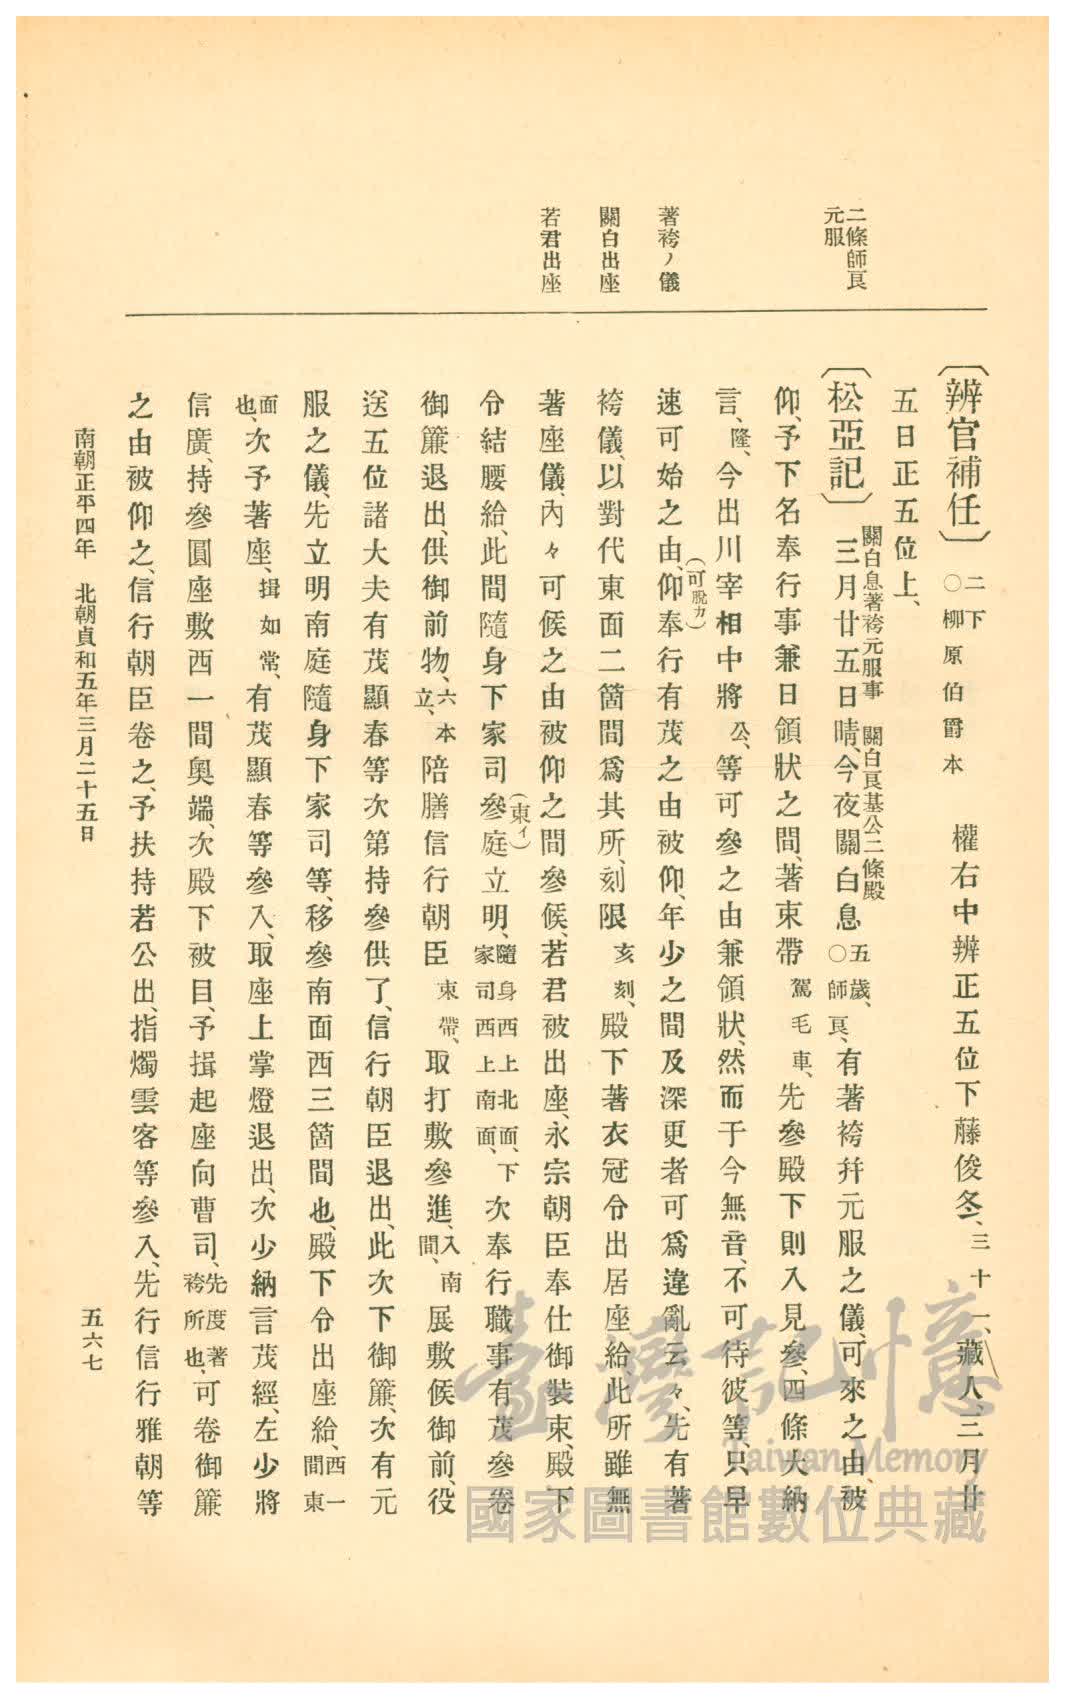 二條師良
元服
著袴ノ儀
關白出座
若君出座
〔辨官補任〕二下○柳原伯爵本 權右中辨正五位下藤俊冬、三十一、藏人、三月廿
五日正五位上、
〔松亞記〕關白息著袴元服事 關白良基公二條殿
三月廿五日晴、今夜關白息五歲、○師良、有著袴幷元服之儀、可來之由、被
仰、予下名奉行事兼日領狀之間、著束帶駕毛車、先參殿下則入見參、四條大納
言、隆、今出川宰相中將公、等可參之由兼領狀、然而于今無音、不可待彼等、只早
速可始之由、仰(可脫カ)奉行有茂之由被仰、年少之間及深更者可爲違亂云々、先有著
袴儀、以對代東面二箇間爲其所、刻限亥刻、殿下著衣冠令出居座給、此所雖無
著座儀、內々可候之由被仰之間參候、若君被出座、永宗朝臣奉仕御裝束、殿下
令結腰給、此間隨身下家司參庭(東イ)立明、隨身西上北面、下家司西上南面、次奉行職事有茂參卷
御簾退出、供御前物、六本立、陪膳信行朝臣束帶、取打敷參進、入南間、展敷候御前、役
送五位諸大夫有茂顯春等次第持參供了、信行朝臣退出、此次下御簾、次有元
服之儀、先立明南庭隨身下家司等、移參南面西三箇間也、殿下令出座給、西一間東
面也、次予著座、揖如常、有茂顯春等參入、取座上掌燈退出、次少納言茂經、左少將
信廣、持參圓座敷西一間奥端、次殿下被目、予揖起座向曹司、先度著袴所也、可卷御簾
之由被仰之、信行朝臣卷之、予扶持若公出、指燭雲客等參入、先行信行雅朝等
南朝正平四年 北朝貞和五年三月二十五日
五六七
臺灣記憶
Taiwan Memory
國家圖書館數位典藏